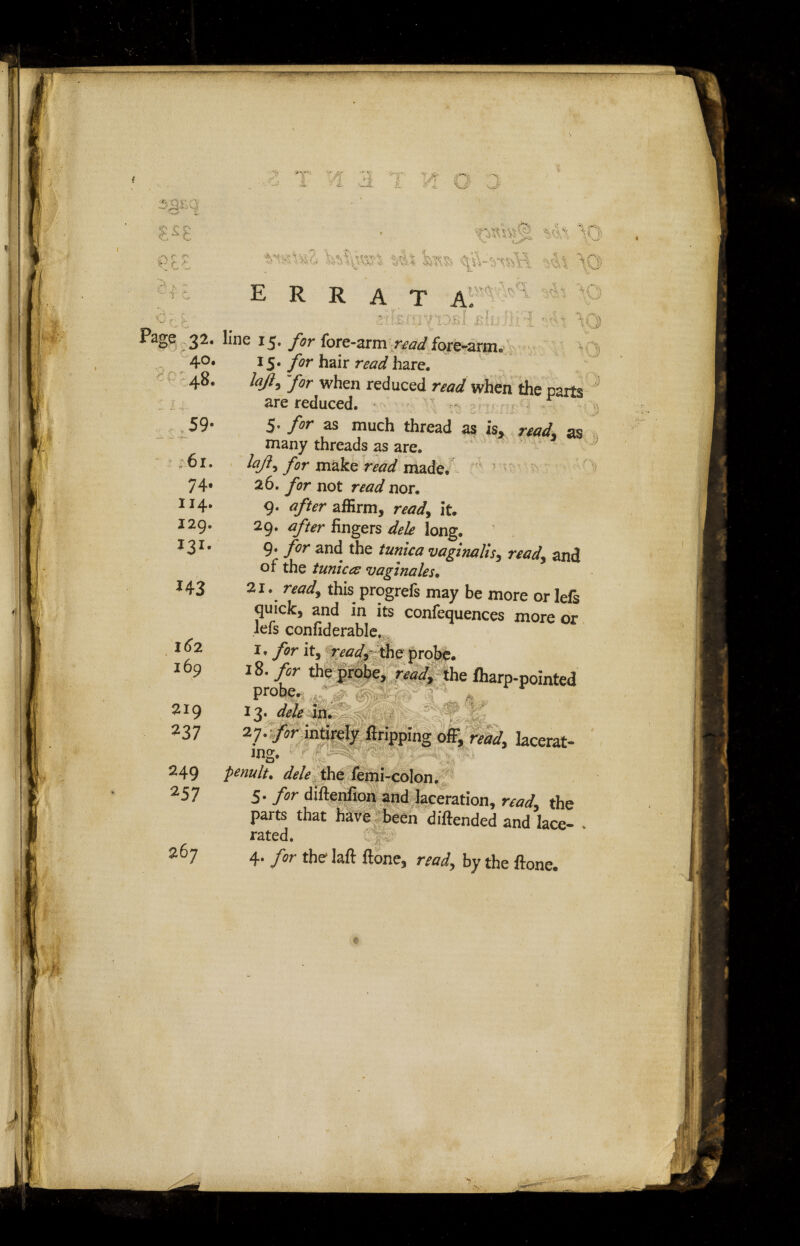 E R R A T A.
Page 32. line 15. for fore-arm read fore-arm.
40. 15. for hair read hare.
48. laſt, for when reduced read when the parts
are reduced.
59. 5. for as much thread as is, read, as
many threads as are.
61. laſt, for make read made.
74. 26. for not read nor.
114. 9. after affirm, read, it.
129. 29. after fingers dele long.
131. 9. for and the tunica vaginalis, read, and
of the tunicæ vaginales.
143 21. read, this progreſs may be more or leſs
quick, and in its conſequences more or
leſs conſiderable.
162 1. for it, read, the probe.
169 18. for the probe, read, the ſharp-pointed
probe.
219 13. dele in.
237 27. for intirely ſtripping off, read, lacerat-
ing.
249 penult. dele the ſemi-colon.
257 5. for diſtenſion and laceration, read, the
parts that have been diſtended and lace-
rated.
267 4. for the laſt ſtone, read, by the ſtone.